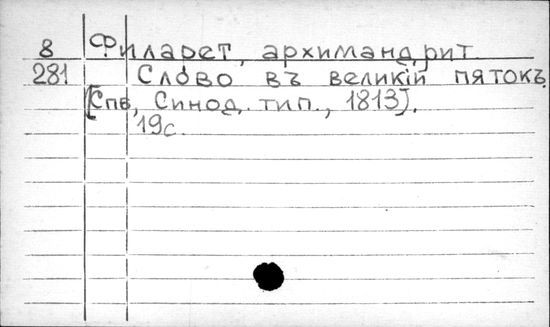 8 Филарет, архимандрит
281 Слово въ великій пятокъ.
[Спв, Синод. тип., 1813].
19с.